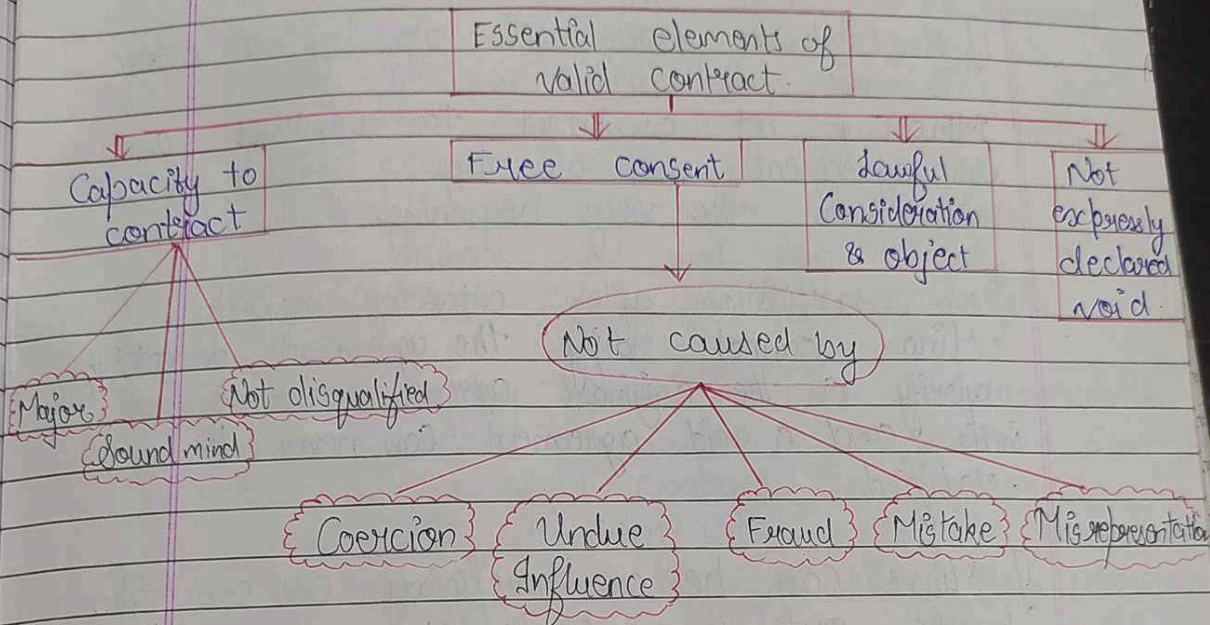 Essential elements of
valid contract.
Capacity to
contract
Free consent
Lawful
Consideration
& object
Not
expressly
declared
void.
Not caused by
Major
Sound mind
Not disqualified
Coercion
Undue
Influence
Fraud
Mistake
Misrepresentatio